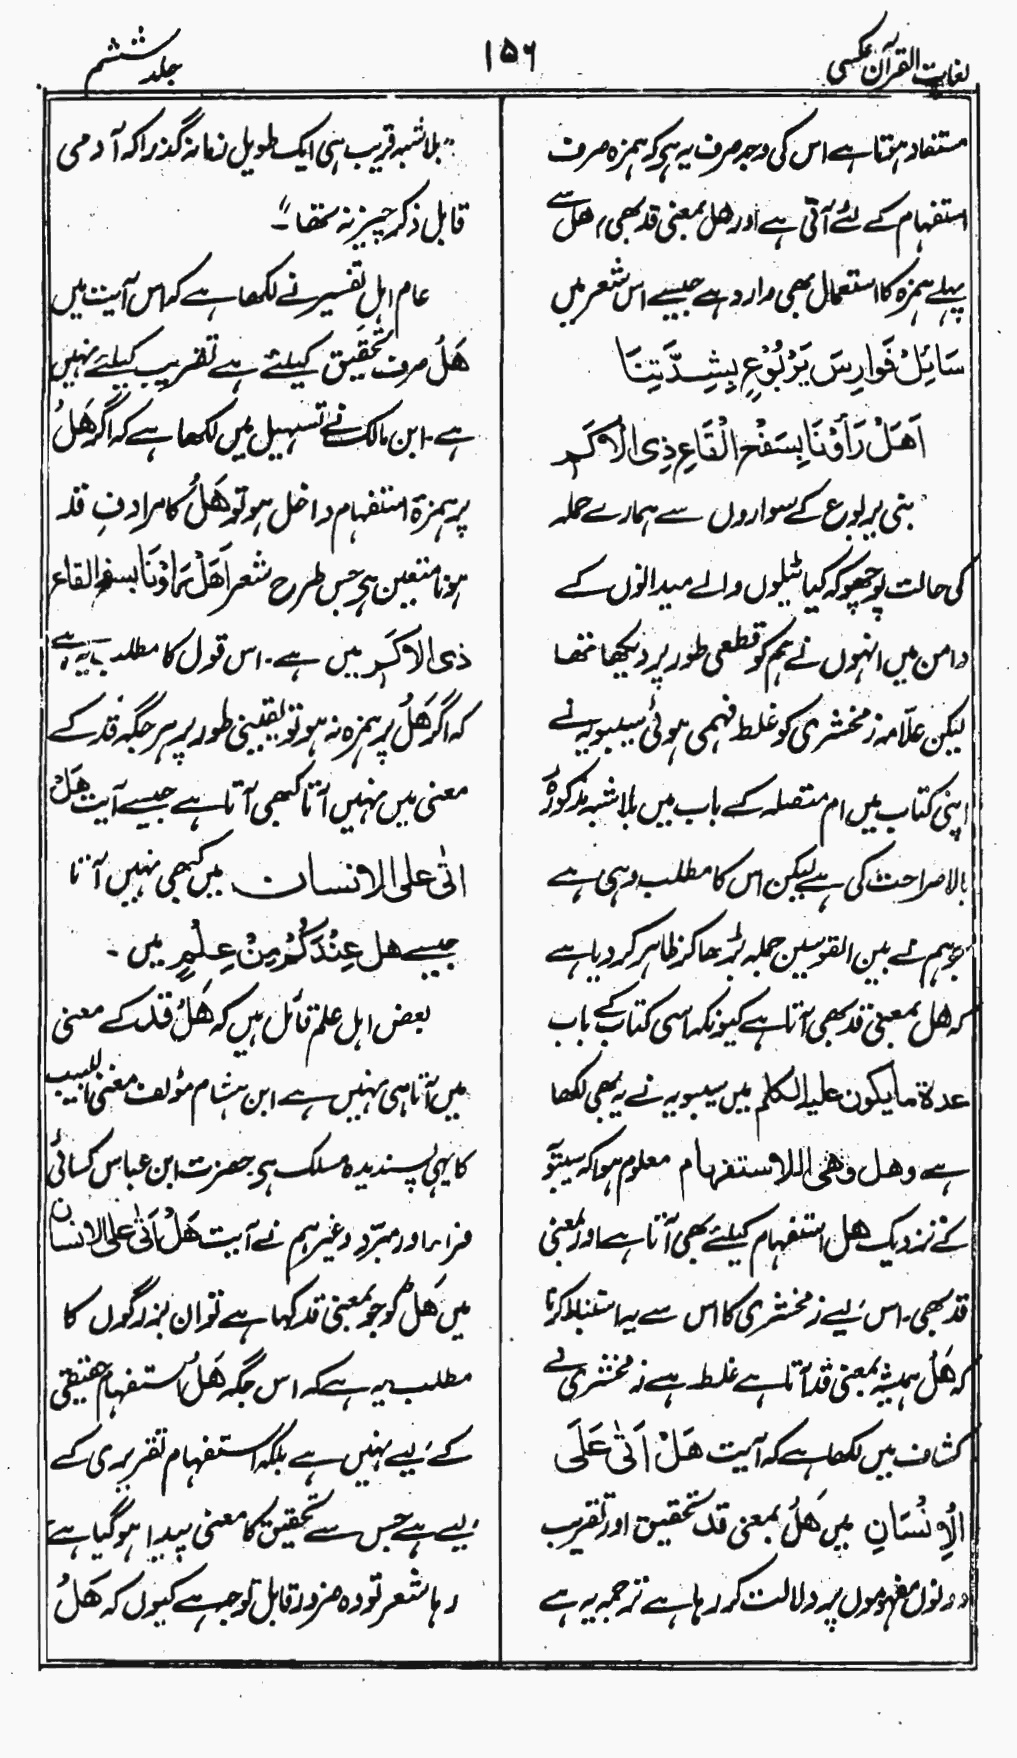 لغات القرآن عکسی
۱۵۶
جلد ششم
مستفاد ہوتا ہے اس کی وجہ صرف یہ ہی کہ ہمزہ صرف
استفہام کے لئے آتی ہے اور ھل بمعنی قد بھی، ھل سے
پہلے ہمزہ کا استعمال بھی وارد ہے جیسے اس شعر میں
سَائِلْ فَوَارِسَ يَرْبُوْعٍ بِشِدَّتِنَا
اَهَلْ رَأَوْنَا بِسَفْحِ الْقَاعِ ذِی الْاَكَمِ
بنی یربوع کے سواروں سے ہمارے حملہ
کی حالت پوچھو کہ کیا ٹیلوں والے میدانوں کے
دامن میں انہوں نے ہم کو قطعی طور پر دیکھا تھا
لیکن علّامہ زمخشری کو غلط فہمی ہوئی سیبویہ نے
اپنی کتاب میں ام متصلہ کے باب میں بلا شبہ مذکورہ
بالا صراحت کی ہے لیکن اس کا مطلب وہی ہے
جو ہم نے بین القوسین جملہ بڑھا کر ظاہر کر دیا ہے
کہ ھل بمعنی قد بھی آتا ہے کیونکہ اسی کتاب کے باب
عدة ما یکون علیہ الکلم میں سیبویہ نے یہ بھی لکھا
ہے وھل وھی للاستفہام معلوم ہوا کہ سیبویہ
کے نزدیک ھل استفہام کیلئے بھی آتا ہے اور بمعنی
قد بھی۔ اس لیے زمخشری کا اس سے یہ استنباط کرنا
کہ ھَلْ ہمیشہ بمعنی قد آتا ہے غلط ہے زمخشری نے
کشاف میں لکھا ہے کہ آیت هَلْ اَتٰی عَلَی
الْاِنْسَانِ میں ھَلْ بمعنی قد تحقیق اور تقریب
دونوں مفہوموں پر دلالت کر رہا ہے ترجمہ یہ ہے
”بلا شبہ قریب ہی ایک طویل زمانہ گذرا کہ آدمی
قابل ذکر چیز نہ تھا“۔
عام اہلِ تفسیر نے لکھا ہے کہ اس آیت میں
ھَلْ صرف تحقیق کیلئے ہے تقریب کیلئے نہیں
ہے۔ ابن مالک نے تسہیل میں لکھا ہے کہ اگر ھَلْ
پر ہمزۃ استفہام داخل ہو تو ھَلْ کا مرادفِ قد
ہونا متعین ہی جس طرح شعر اَهَلْ رَاَوْنَا بسفح القاع
ذی الاَکَمِ میں ہے۔ اس قول کا مطلب یہ ہے
کہ اگر ھَلْ پر ہمزہ نہ ہو تو یقینی طور پر ہر جگہ قد کے
معنی میں نہیں آتا کبھی آتا ہے جیسے آیت هَلْ
اتٰی علی الانسان میں کبھی نہیں آتا
جیسے هل عِنْدَكُمْ مِنْ عِلْمٍ میں ۔
بعض اہل علم قائل ہیں کہ ھَلْ قَدْ کے معنی
میں آتا ہی نہیں ہے ابن ہشام مؤلف مغنی اللبیب
کا یہی پسندیدہ مسلک ہی حضرت ابن عباس کسائی
فراء اور مبرّد وغیرہم نے آیت هَلْ اَتٰی علی الانسان
میں ھَلْ کو جو بمعنی قد کہا ہے تو ان بزرگوں کا
مطلب یہ ہے کہ اس جگہ ھَلْ استفہام حقیقی
کے لیے نہیں ہے بلکہ استفہام تقریری کے
لیے ہے جس سے تحقیق کا معنی پیدا ہو گیا ہے
رہا شعر تو وہ ضرور قابل توجہ ہے کیوں کہ ھَلْ